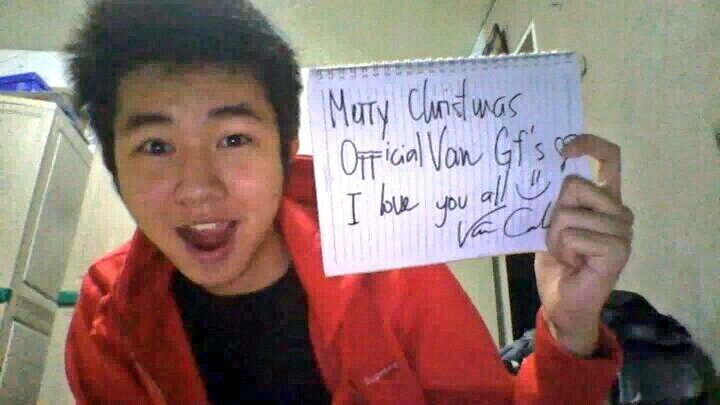 Merry Christmas
Official Van Gf's ♡
I love you all =)
Van